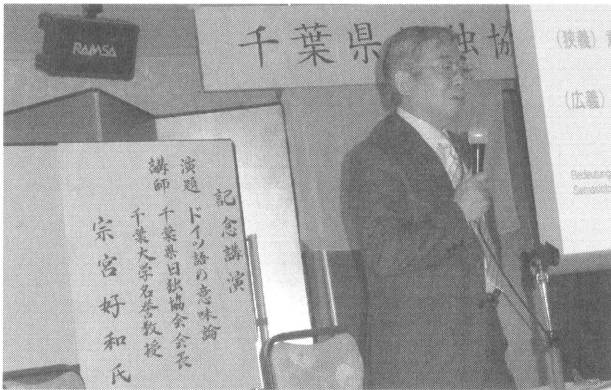 RAMSA
千葉県 独協
(狭義) 意
(広義)
Bedeutung
記念講演
演題 ドイツ語の意味論
講師 千葉県日独協会会長
千葉大学名誉教授
宗宮好和氏